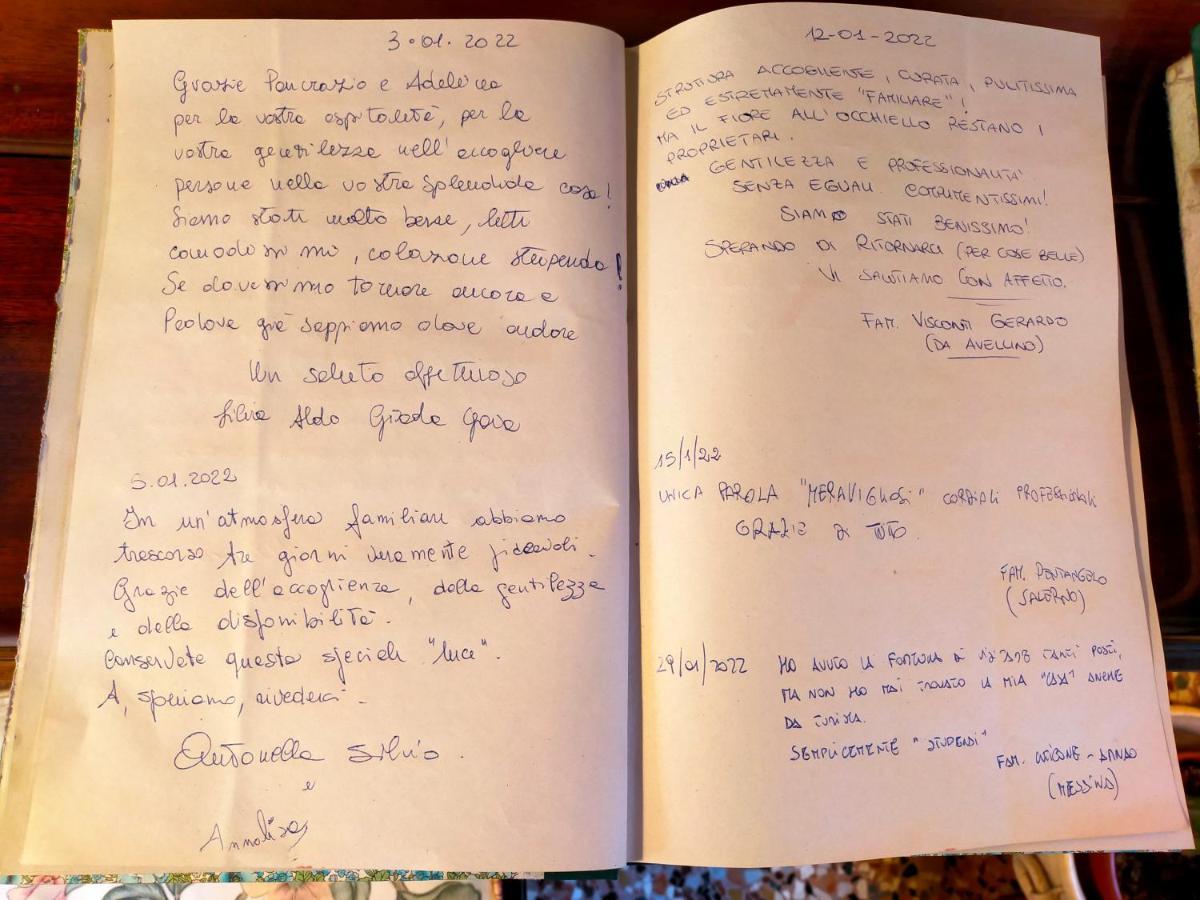 3.01.2022
Grazie Pancrazio e Adelina
per la vostra ospitalità, per la
vostra gentilezza nell'accogliere
persone nella vostra splendida casa!
Siamo stati molto bene, letti
comodissimi, colazione stupenda!
Se dovessimo tornare ancora a
Padova già sappiamo dove andare
Un saluto affettuoso
Silvia Aldo Giada Gaia
5.01.2022
In un'atmosfera familiare abbiamo
trascorso tre giorni veramente piacevoli.
Grazie dell'accoglienza, della gentilezza
e della disponibilità.
Conservate questa speciale "luce".
A, speriamo, rivederci.
Antonella Silvio.
e
Annalisa
12-01-2022
STRUTTURA ACCOGLIENTE, CURATA, PULITISSIMA
ED ESTREMAMENTE "FAMILIARE"!
MA IL FIORE ALL'OCCHIELLO RESTANO I
PROPRIETARI.
GENTILEZZA E PROFESSIONALITÀ
SENZA EGUALI. COMPLIMENTISSIMI!
SIAMO STATI BENISSIMO!
SPERANDO DI RITORNARCI (PER COSE BELLE)
VI SALUTIAMO CON AFFETTO.
FAM. VISCONTI GERARDO
(DA AVELLINO)
15/1/22
UNICA PAROLA "MERAVIGLIOSI" CORDIALI PROFESSIONALI
GRAZIE DI TUTTO.
FAM. PONTANGOLO
(SALERNO)
29/01/2022 HO AVUTO LA FORTUNA DI TANTI POSTI,
MA NON HO MAI TROVATO LA MIA "CASA" ANCHE
DA TURISTA.
SEMPLICEMENTE "STUPENDI"
FAM.
(MESSINA)